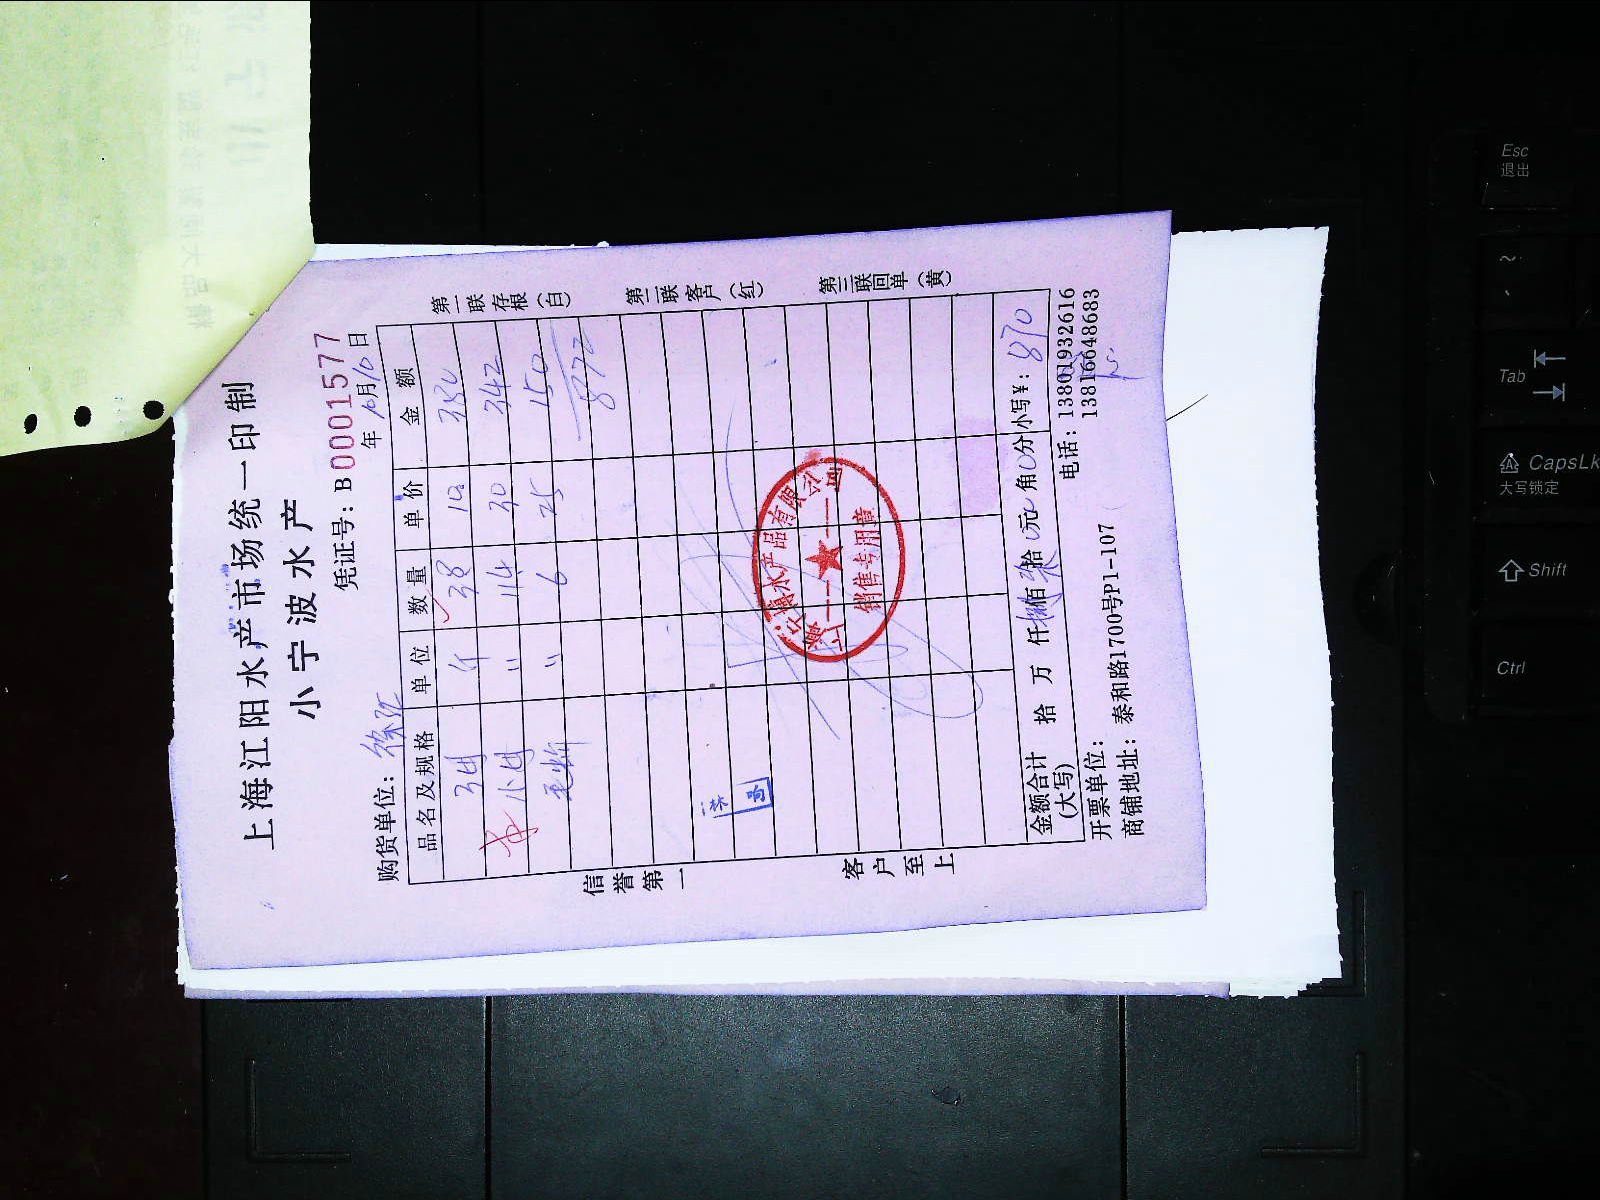 上海江阳水产市场统一印制
小宁波水产
凭证号：B0001577
购货单位：徐汇 年10月10日
品名及规格 单位 数量 单价 金额
38 10 380
小 〃 30 342
毛蚶 〃 6 25 150
872
第一联存根（白）
第二联客户（红）
第三联回单（黄）
信誉第一
客户至上
水产品有限公司
销售专用章
金额合计（大写） 拾 万 仟 捌佰柒拾0元0角0分 小写¥：870
开票单位： 电话：13801932616
商铺地址：泰和路1700号P1-107 13816648683
Esc
退出
~
Tab
CapsLk
大写锁定
Shift
Ctrl